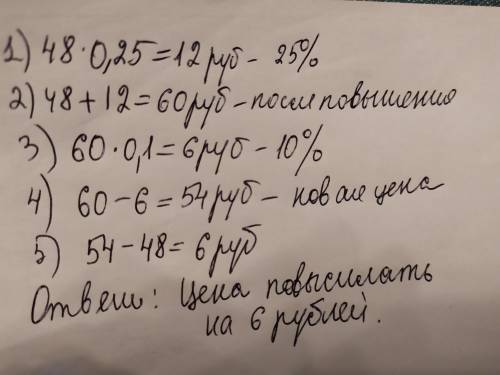 1) 48·0,25=12руб - 25%
2) 48+12=60руб-послповышения
3) 60·0,1=6руб-10%
4) 60-6=54руб- новая цена
5) 54-48=6руб
Ответ: Цена повысилать
на 6 рублей.